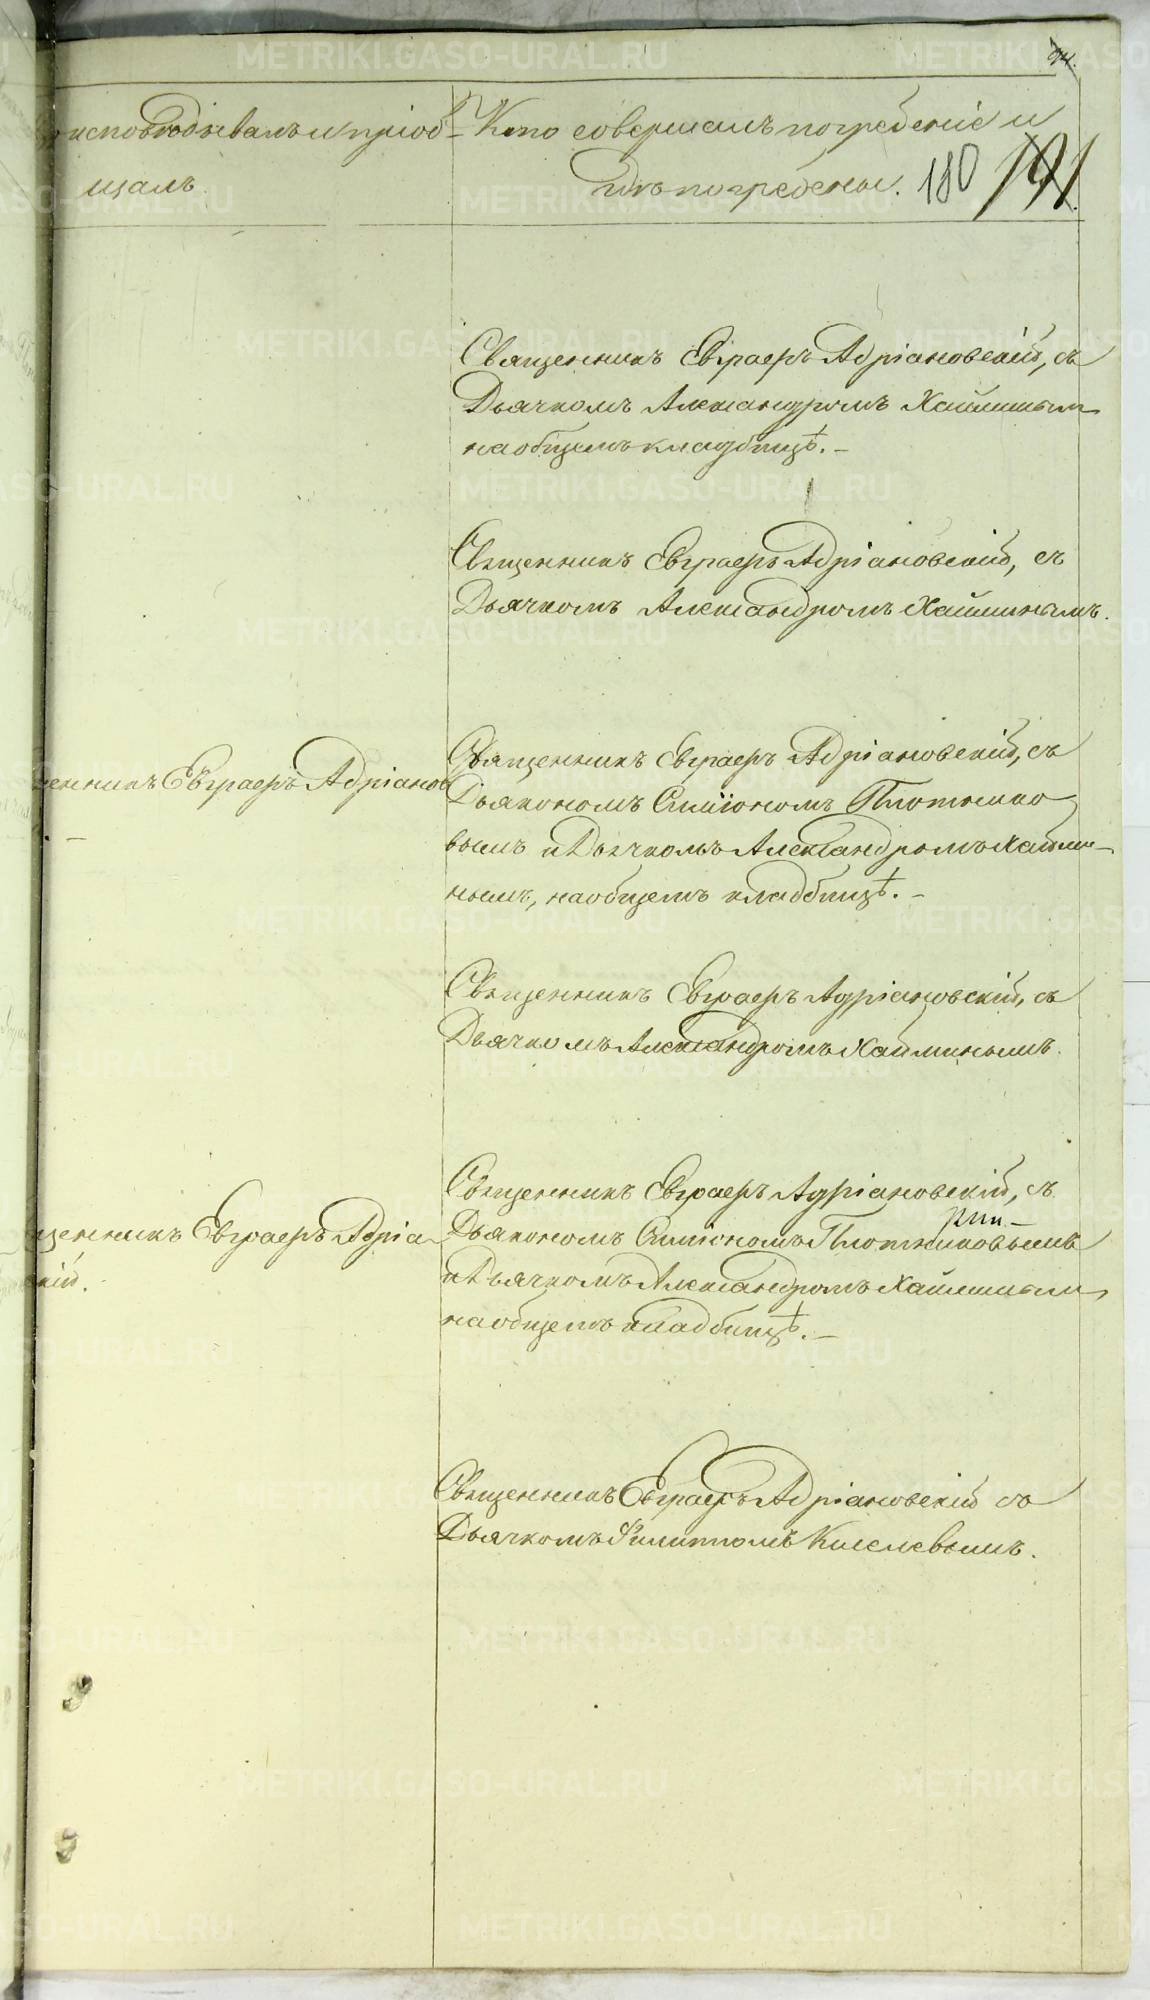 исповѣдывалъ и пріоб-
щалъ.
Кто совершалъ погребеніе и
гдѣ погребены.
180
191
Священникъ Евграфъ Адріановскій, съ
Дьячкомъ Александромъ Хайминым
на общемъ кладбищѣ.–
Священникъ Евграфъ Адріановскій, съ
Дьячкомъ Александромъ Хайминымъ.
щенникъ Евграфъ Адріанов
–
Священникъ Евграфъ Адріановскій, съ
Дьякономъ Симіономъ Плотнико
вымъ и Дьячкомъ Александромъ Хайми-
нымъ, на общемъ кладбищѣ.–
Священникъ Евграфъ Адріановскій, съ
Дьячкомъ Александромъ Хайминымъ.
щенникъ Евграфъ Адріа-
скій.
Священникъ Евграфъ Адріановскій, съ
Дьякономъ Симіономъ Плотниковымъ
и Дьячкомъ Александромъ Хайминым
на общемъ кладбищѣ.–
Священникъ Евграфъ Адріановскій съ
Дьячкомъ Филиппомъ Киселевымъ.
METRIKI.GASO-URAL.RU